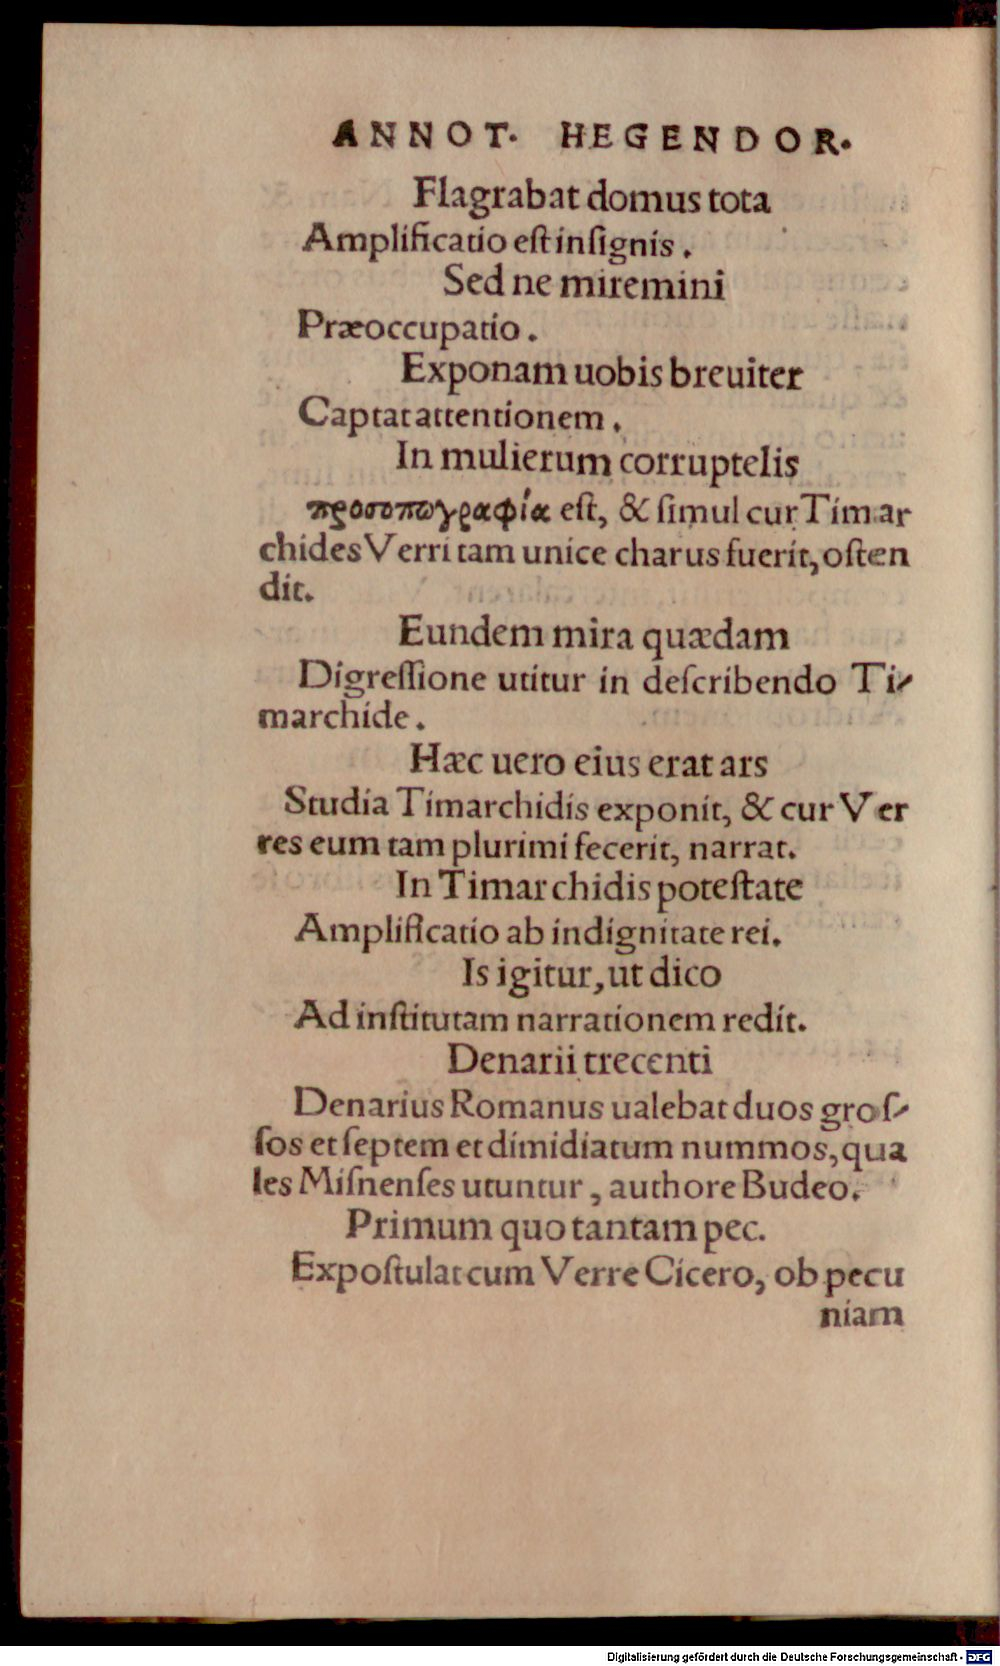 ANNOT. HEGENDOR.
Flagrabat domus tota
Amplificatio eſt inſignis.
Sed ne miremini
Præoccupatio.
Exponam uobis breuiter
Captat attentionem.
In mulierum corruptelis
προσοπωγραφία eſt, & ſimul cur Timar
chides Verri tam unice charus fuerit, oſten
dit.
Eundem mira quædam
Digreſſione utitur in deſcribendo Ti-
marchide.
Hæc uero eius erat ars
Studia Timarchidis exponit, & cur Ver
res eum tam plurimi fecerit, narrat.
In Timarchidis poteſtate
Amplificatio ab indignitate rei.
Is igitur, ut dico
Ad inſtitutam narrationem redit.
Denarii trecenti
Denarius Romanus ualebat duos groſ-
ſos et ſeptem et dimidiatum nummos, qua
les Miſnenſes utuntur, authore Budeo.
Primum quo tantam pec.
Expoſtulat cum Verre Cicero, ob pecu
niam
Digitalisierung gefördert durch die Deutsche Forschungsgemeinschaft - DFG